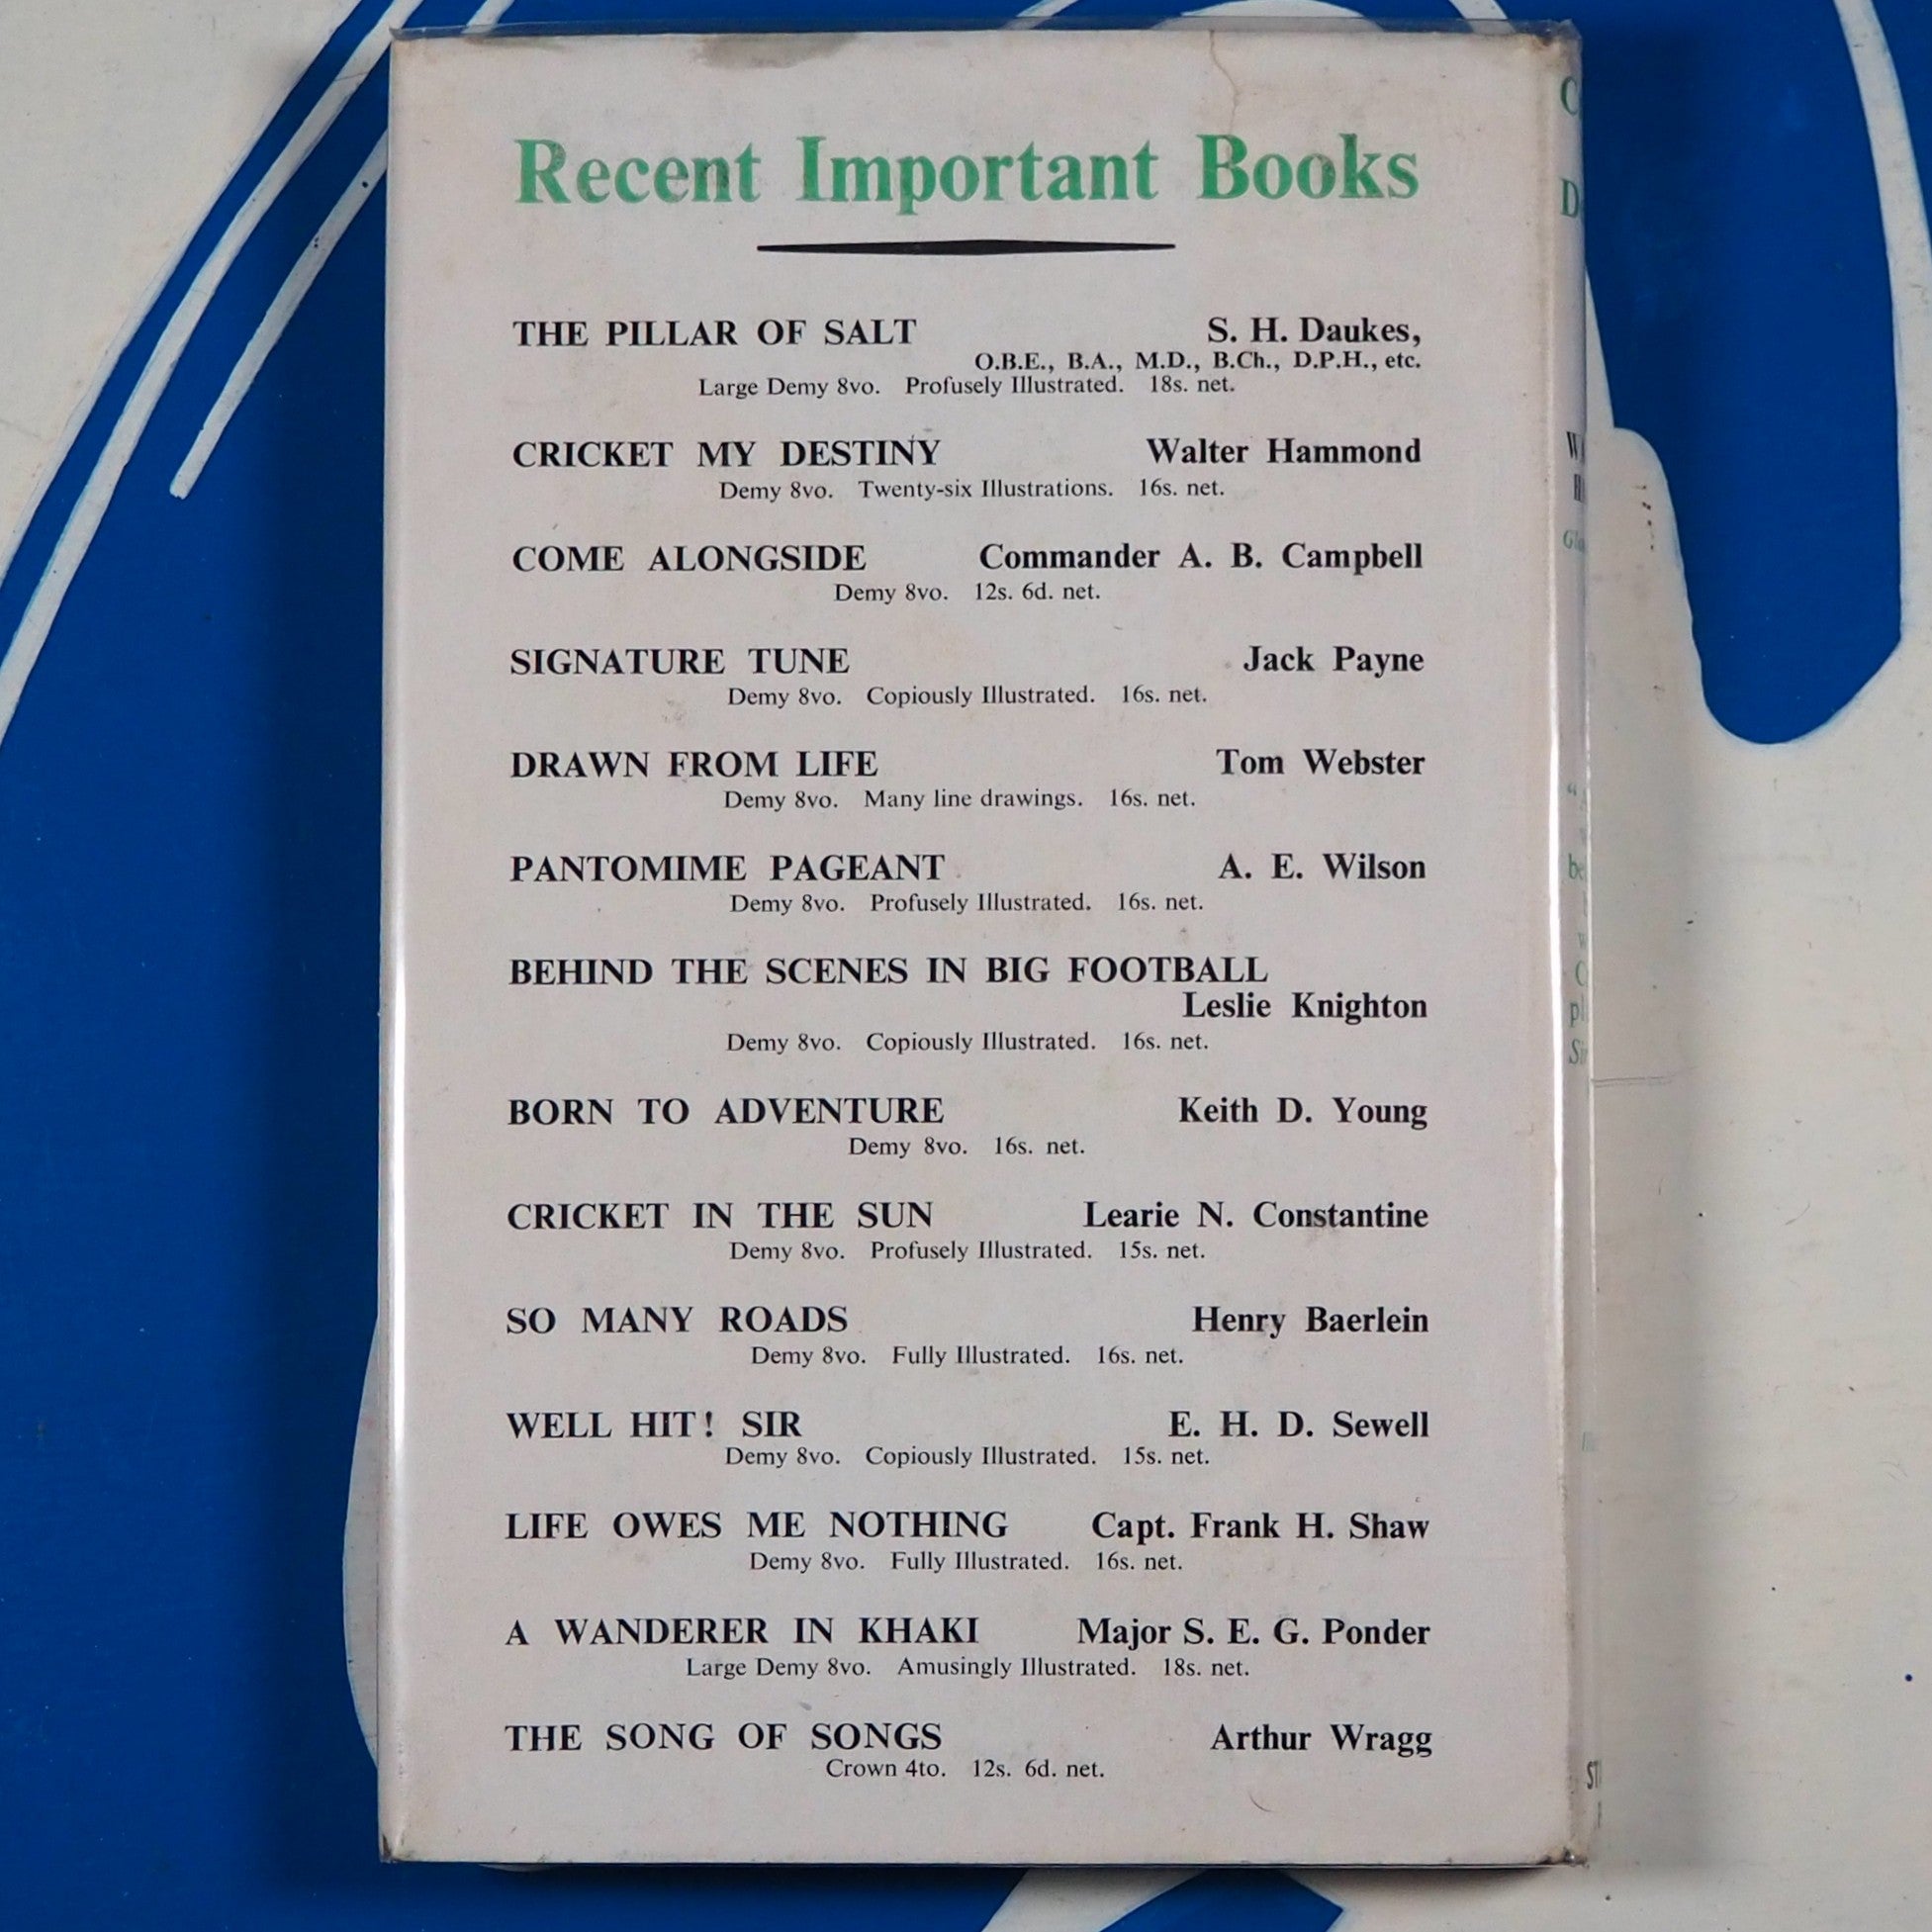 Recent Important Books
THE PILLAR OF SALT S. H. Daukes,
O.B.E., B.A., M.D., B.Ch., D.P.H., etc.
Large Demy 8vo. Profusely Illustrated. 18s. net.
CRICKET MY DESTINY Walter Hammond
Demy 8vo. Twenty-six Illustrations. 16s. net.
COME ALONGSIDE Commander A. B. Campbell
Demy 8vo. 12s. 6d. net.
SIGNATURE TUNE Jack Payne
Demy 8vo. Copiously Illustrated. 16s. net.
DRAWN FROM LIFE Tom Webster
Demy 8vo. Many line drawings. 16s. net.
PANTOMIME PAGEANT A. E. Wilson
Demy 8vo. Profusely Illustrated. 16s. net.
BEHIND THE SCENES IN BIG FOOTBALL
Leslie Knighton
Demy 8vo. Copiously Illustrated. 16s. net.
BORN TO ADVENTURE Keith D. Young
Demy 8vo. 16s. net.
CRICKET IN THE SUN Learie N. Constantine
Demy 8vo. Profusely Illustrated. 15s. net.
SO MANY ROADS Henry Baerlein
Demy 8vo. Fully Illustrated. 16s. net.
WELL HIT! SIR E. H. D. Sewell
Demy 8vo. Copiously Illustrated. 15s. net.
LIFE OWES ME NOTHING Capt. Frank H. Shaw
Demy 8vo. Fully Illustrated. 16s. net.
A WANDERER IN KHAKI Major S. E. G. Ponder
Large Demy 8vo. Amusingly Illustrated. 18s. net.
THE SONG OF SONGS Arthur Wragg
Crown 4to. 12s. 6d. net.